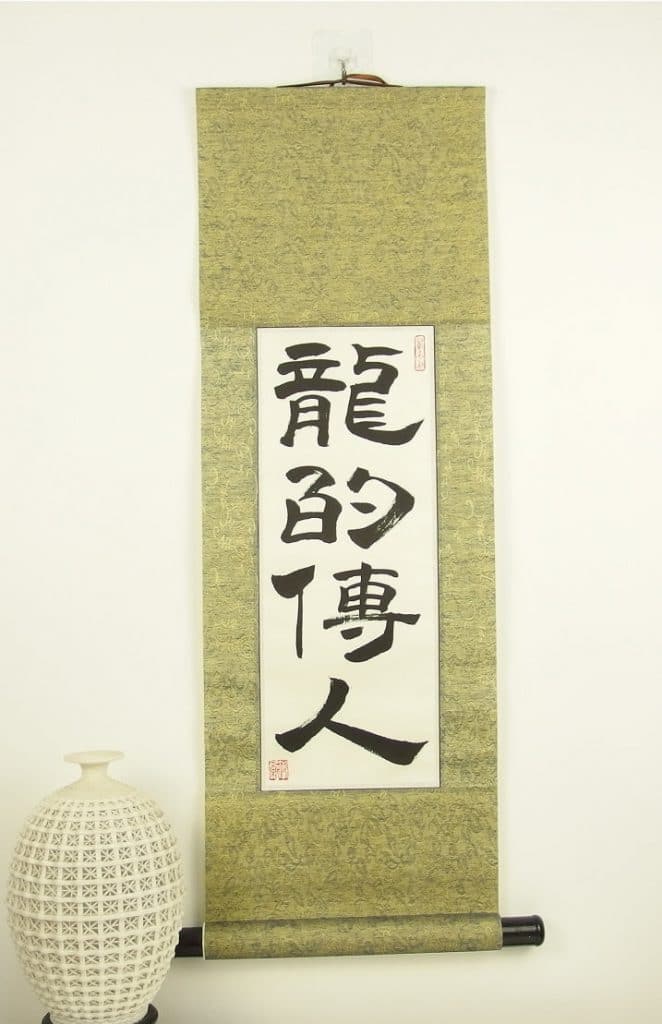 龍的傳人